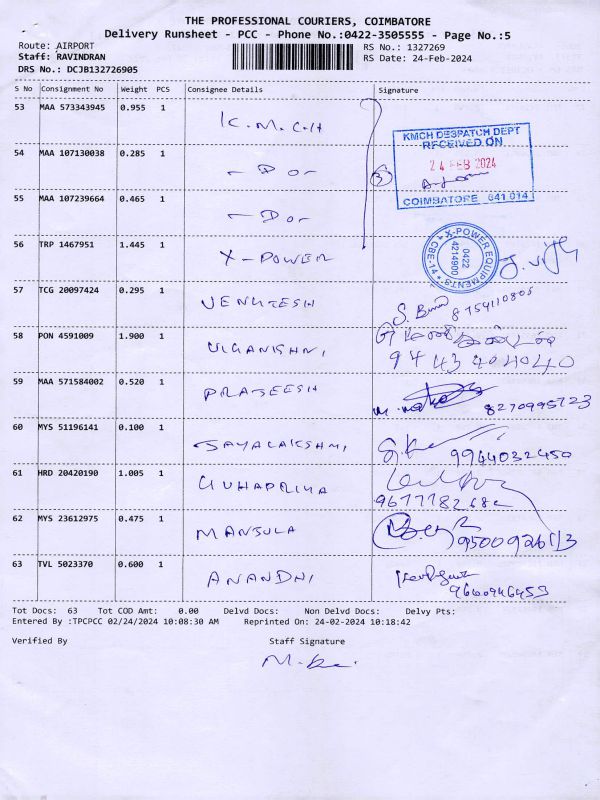 THE PROFESSIONAL COURIERS, COIMBATORE
Delivery Runsheet - PCC - Phone No.:0422-3505555 - Page No.:5
Route: AIRPORT RS No.: 1327269
Staff: RAVINDRAN RS Date: 24-Feb-2024
DRS No.: DCJB132726905
S No Consignment No Weight PCS Consignee Details Signature
53 MAA 573343945 0.955 1 K.M.C.H
KMCH DESPATCH DEPT
RECEIVED ON
24 FEB 2024
COIMBATORE 641 014
54 MAA 107130038 0.285 1 - Do - 3
55 MAA 107239664 0.465 1 - Do -
56 TRP 1467951 1.445 1 X-POWER
X-POWER EQUIPMENTS * CBE-14 *
0422
4214900
57 TCG 20097424 0.295 1 VENKTESH 8754110805
58 PON 4591009 1.900 1 9443404040
59 MAA 571584002 0.520 1 PRAJEESH 8270995723
60 MYS 51196141 0.100 1 JAYALAKSHMI 9944032450
61 HRD 20420190 1.005 1 GUHAPRIYA
62 MYS 23612975 0.475 1 MANJULA 9500926113
63 TVL 5023370 0.600 1 ANANDHI 9600946453
Tot Docs: 63 Tot COD Amt: 0.00 Delvd Docs: Non Delvd Docs: Delvy Pts:
Entered By :TPCPCC 02/24/2024 10:08:30 AM Reprinted On: 24-02-2024 10:18:42
Verified By Staff Signature